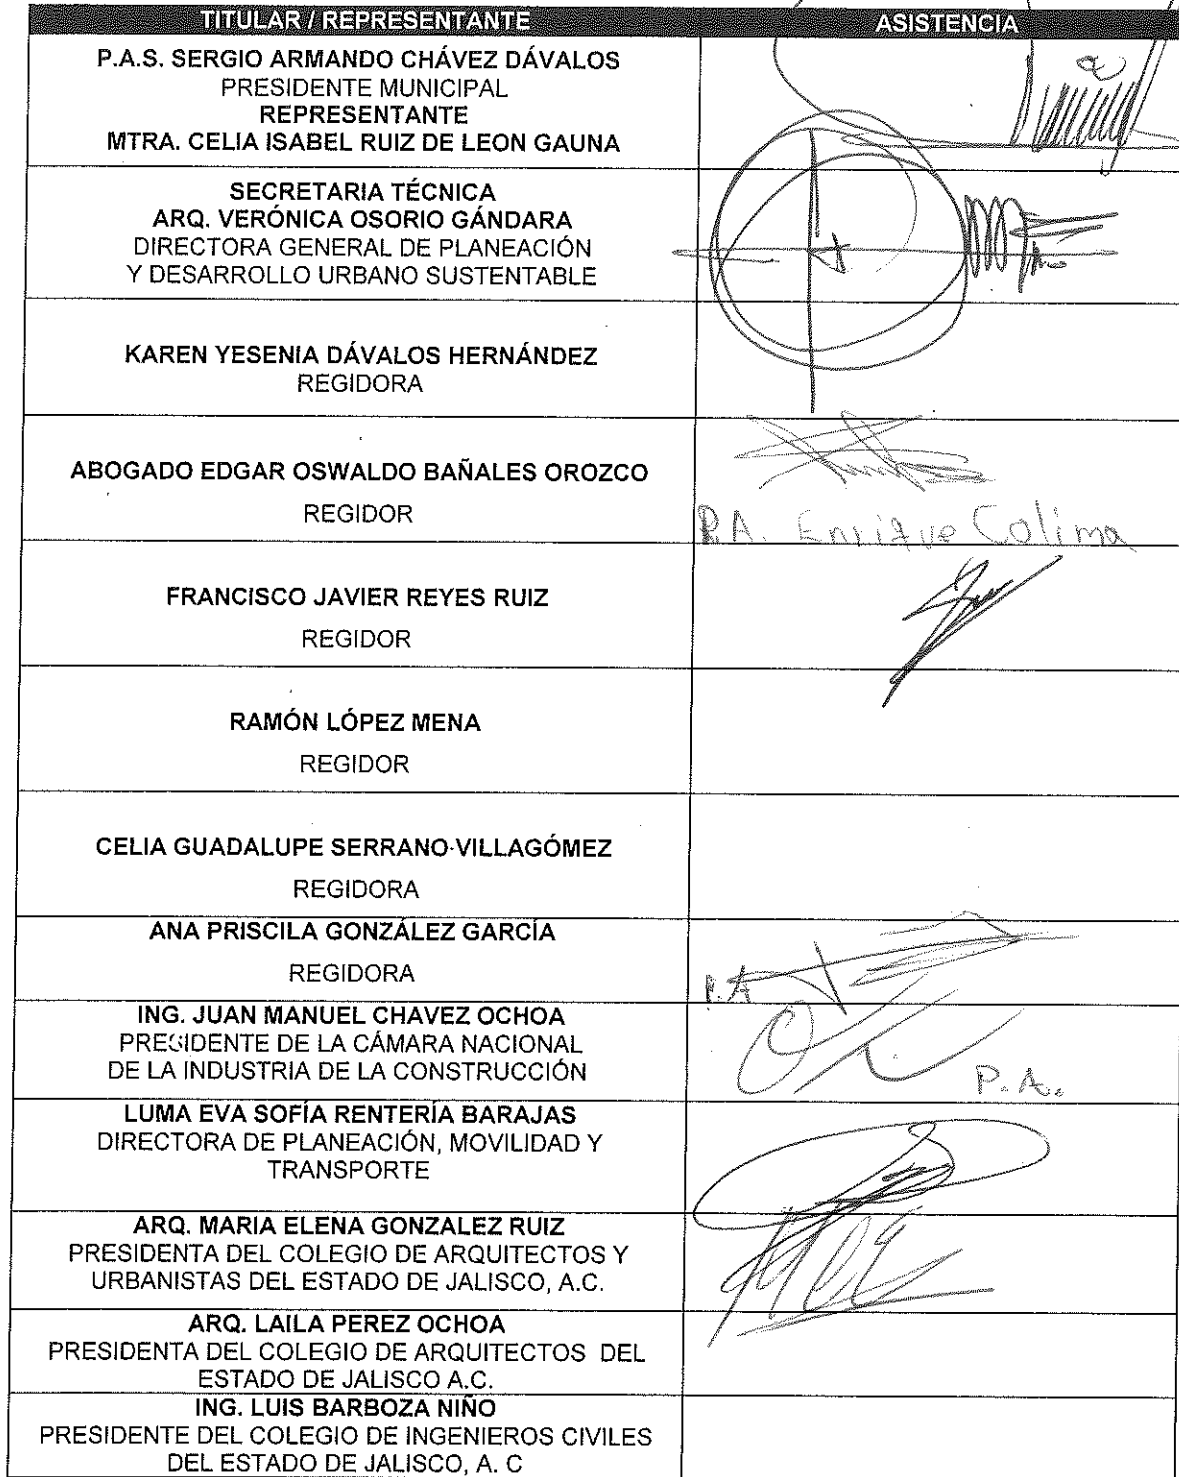 TITULAR / REPRESENTANTE
ASISTENCIA
P.A.S. SERGIO ARMANDO CHÁVEZ DÁVALOS
PRESIDENTE MUNICIPAL
REPRESENTANTE
MTRA. CELIA ISABEL RUIZ DE LEON GAUNA
SECRETARIA TÉCNICA
ARQ. VERÓNICA OSORIO GÁNDARA
DIRECTORA GENERAL DE PLANEACIÓN
Y DESARROLLO URBANO SUSTENTABLE
KAREN YESENIA DÁVALOS HERNÁNDEZ
REGIDORA
ABOGADO EDGAR OSWALDO BAÑALES OROZCO
REGIDOR
P.A. Enrique Colima
FRANCISCO JAVIER REYES RUIZ
REGIDOR
RAMÓN LÓPEZ MENA
REGIDOR
CELIA GUADALUPE SERRANO VILLAGÓMEZ
REGIDORA
ANA PRISCILA GONZÁLEZ GARCÍA
REGIDORA
P.A
ING. JUAN MANUEL CHAVEZ OCHOA
PRESIDENTE DE LA CÁMARA NACIONAL
DE LA INDUSTRIA DE LA CONSTRUCCIÓN
P.A.
LUMA EVA SOFÍA RENTERÍA BARAJAS
DIRECTORA DE PLANEACIÓN, MOVILIDAD Y
TRANSPORTE
ARQ. MARIA ELENA GONZALEZ RUIZ
PRESIDENTA DEL COLEGIO DE ARQUITECTOS Y
URBANISTAS DEL ESTADO DE JALISCO, A.C.
ARQ. LAILA PEREZ OCHOA
PRESIDENTA DEL COLEGIO DE ARQUITECTOS DEL
ESTADO DE JALISCO A.C.
ING. LUIS BARBOZA NIÑO
PRESIDENTE DEL COLEGIO DE INGENIEROS CIVILES
DEL ESTADO DE JALISCO, A. C